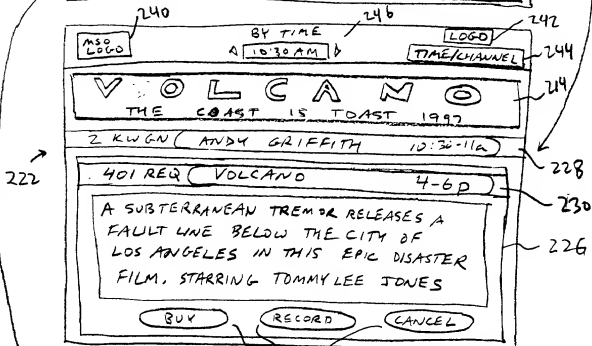 240
BY TIME
246
LOGO
242
MSO LOGO
10:30 AM
TIME/CHANNEL
244
VOLCANO
214
THE COAST IS TOAST 1997
2 KWGN ANDY GRIFFITH 10:30-11a
228
222
401 REQ VOLCANO 4-6p
230
A SUBTERRANEAN TREMOR RELEASES A
FAULT LINE BELOW THE CITY OF
LOS ANGELES IN THIS EPIC DISASTER
FILM. STARRING TOMMY LEE JONES
226
BUY RECORD CANCEL